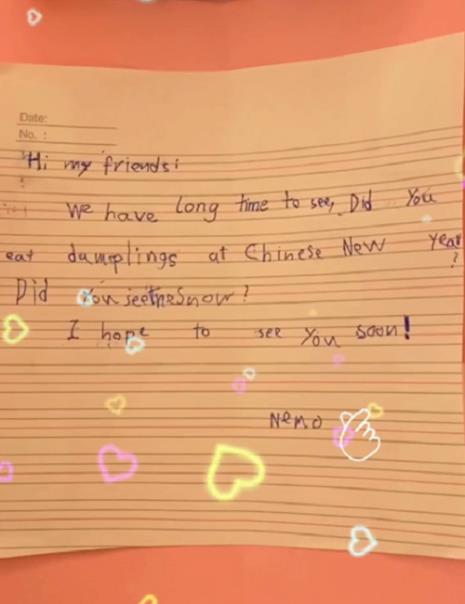 Date:
No. :
Hi my friends:
We have long time to see, Did You
eat dumplings at Chinese New Year
?
Did You seetheSnow?
I hope to see You soon!
Nemo